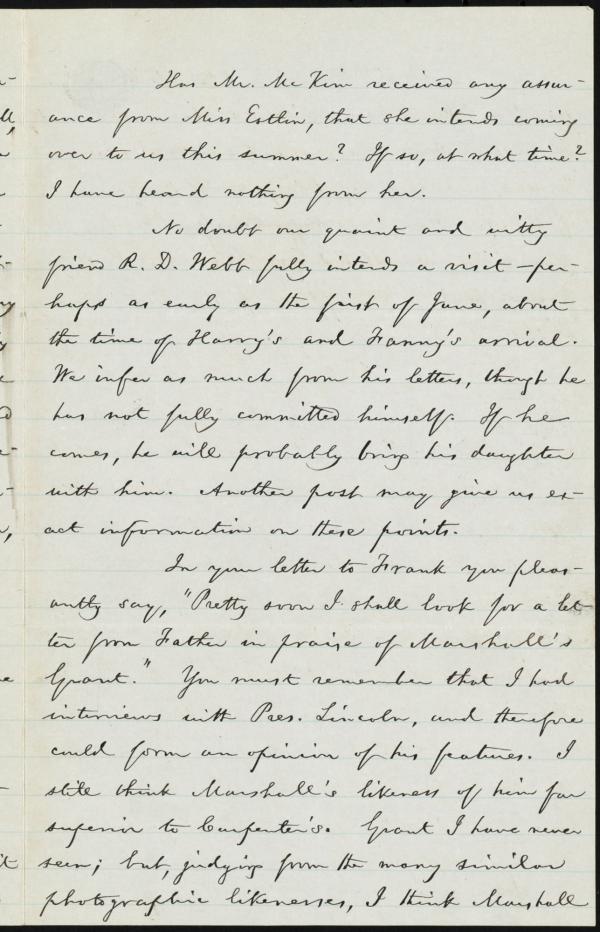 Has Mr. McKim received any assur-
ance from Miss Estlin, that she intends coming
over to us this summer? If so, at what time?
I have heard nothing from her.
No doubt our quaint and witty
friend R. D. Webb fully intends a visit—per-
haps as early as the first of June, about
the time of Harry's and Fanny's arrival.
We infer as much from his letters, though he
has not fully committed himself. If he
comes, he will probably bring his daughter
with him. Another post may give us ex-
act information on these points.
In your letter to Frank you pleas-
antly say, "Pretty soon I shall look for a let-
ter from Father in praise of Marshall's
Grant." You must remember that I had
interviews with Pres. Lincoln, and therefore
could form an opinion of his features. I
still think Marshall's likeness of him far
superior to Carpenter's. Grant I have never
seen; but, judging from the many similar
photographic likenesses, I think Marshall